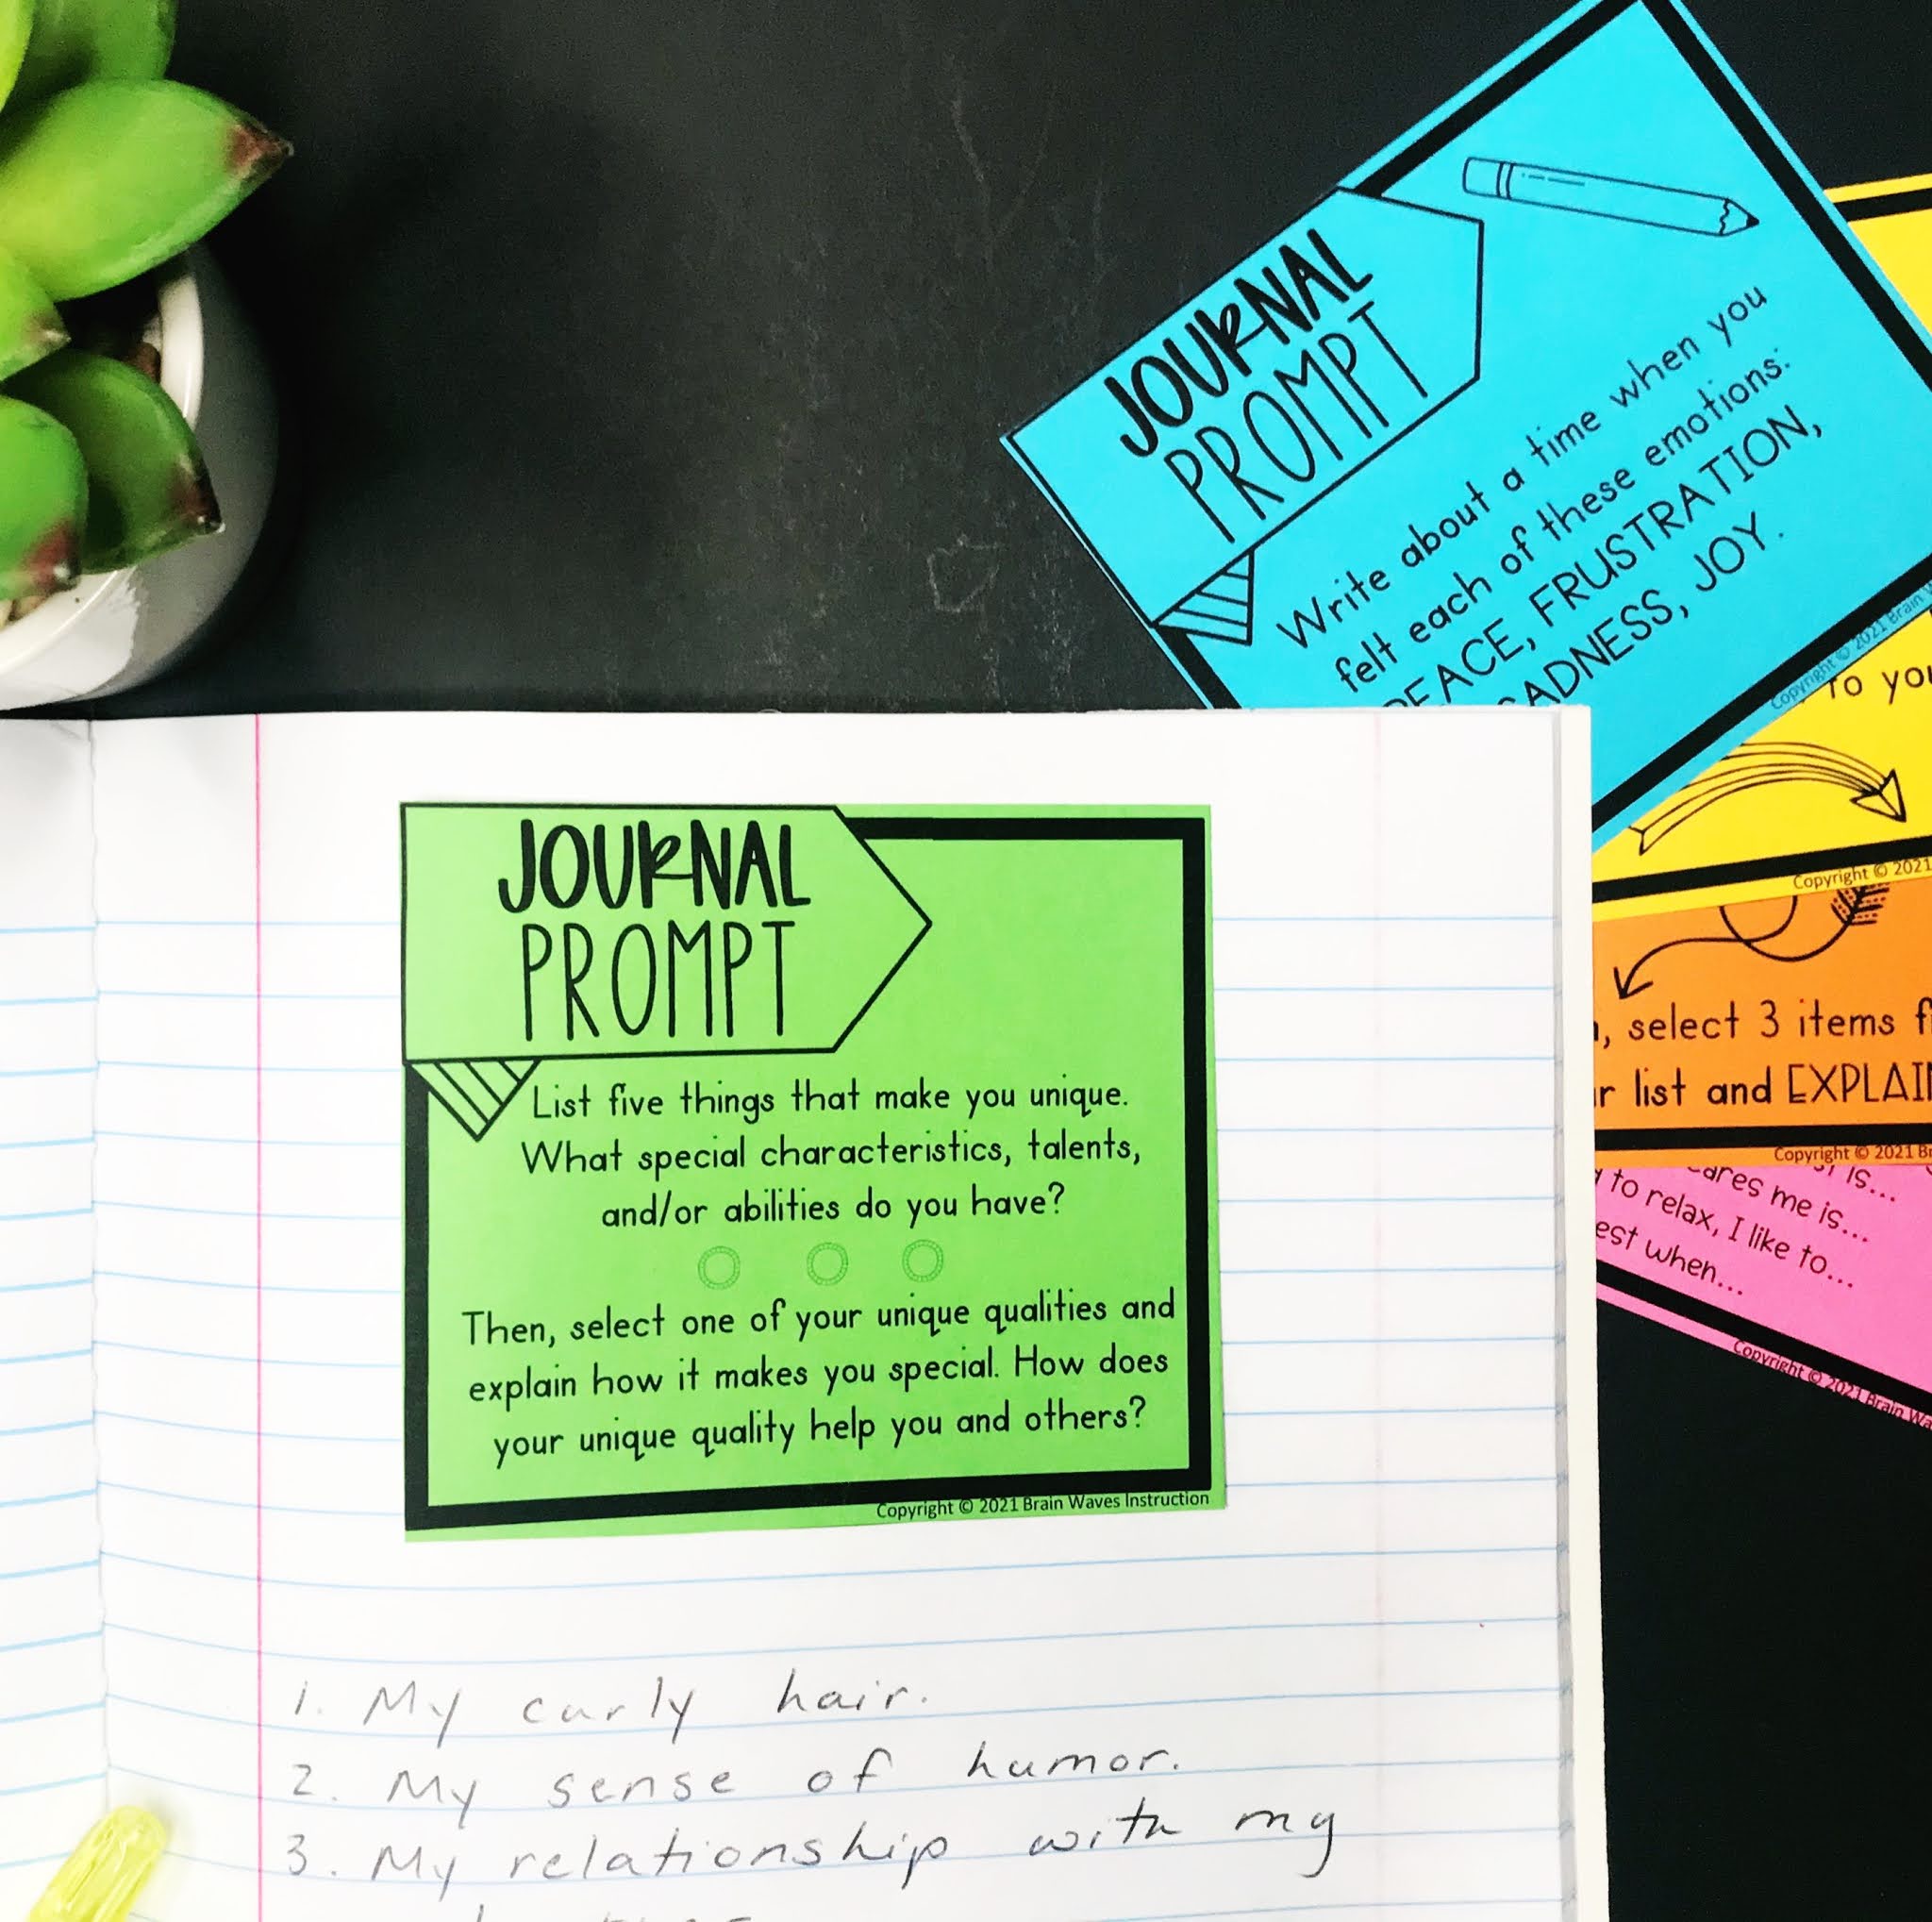 JOURNAL
PROMPT
Write about a time when you
felt each of these emotions:
PEACE, FRUSTRATION,
SADNESS, JOY.
Copyright © 2021 Brain
to you
Copyright © 2021
select 3 items
list and EXPLAIN
Copyright © 2021
is...
me is...
to relax, I like to...
when...
Copyright © 2021 Brain
JOURNAL
PROMPT
List five things that make you unique.
What special characteristics, talents,
and/or abilities do you have?
Then, select one of your unique qualities and
explain how it makes you special. How does
your unique quality help you and others?
Copyright © 2021 Brain Waves Instruction
1. My curly hair.
2. My sense of humor.
3. My relationship with my